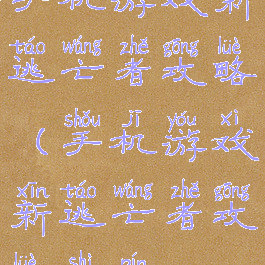 手机游戏新
táo wáng zhě gōng lüè
逃亡者攻略
shǒu jī yóu xì
(手机游戏
xīn táo wáng zhě gōng
新逃亡者攻
lüè shì pín